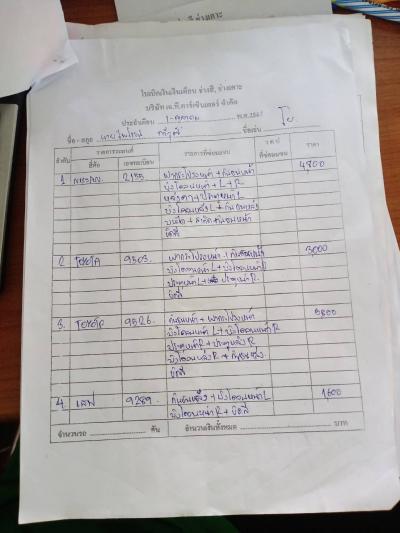 ใบเบิกเงินเงินเดือน ช่างสี, ช่างเคาะ
บริษัท เจ.ที.คาร์เซ็นเตอร์ จำกัด
ประจำเดือน 1-ตุลาคม พ.ศ. 256
ชื่อ - สกุล นาย ชื่อเล่น โย.
ลำดับ รายการรถยนต์ รายการที่ซ่อมแผล ราคา
ยี่ห้อ เลขทะเบียน
1 2155 ฝากระโปรงหน้า + กันชนหน้า 4,800
บังโคลนหน้า L + R
หลังคา + ประตูหน้า L
บังโคลนหลัง L + กันชนหลัง
กันชนหน้า
ขัดสี
2 TOYOTA 9503. ฝากระโปรงหน้า + กันชนหน้า 3,000
บังโคลนหน้า L + บังโคลนหน้า R
ประตูหน้า L + ประตูหน้า R.
ขัดสี
3. TOYOTA 9526. กันชนหน้า + ฝากระโปรงหน้า 5800
บังโคลนหน้า L + บังโคลนหน้า R
ประตูหน้า R + ประตูหลัง R
บังโคลนหลัง R + กันชนหลัง.
ขัดสี
4. 9289. กันชนหลัง + บังโคลนหน้า L 1,600
บังโคลนหน้า R + ขัดสี
จำนวนรถ คัน จำนวนเงินทั้งหมด บาท